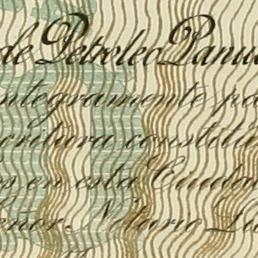 de Petroleo Panu
ntegramente pa
critura constitu
s en esta Ciudad
eñor Notario Lu